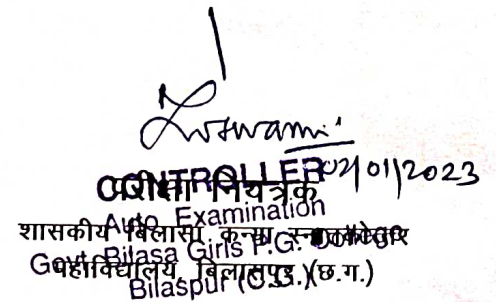 02/01/2023
CONTROLLER
परीक्षा नियंत्रक
Auto Examination
शासकीय बिलासा कन्या स्नातकोत्तर
Govt. Bilasa Girls P.G.
महाविद्यालय, बिलासपुर (छ.ग.)
Bilaspur (C.G.)